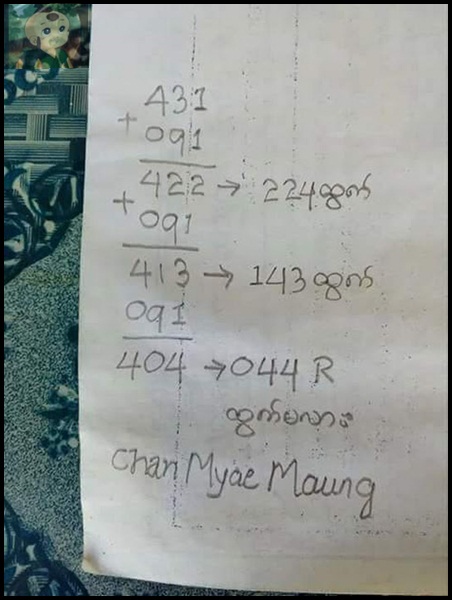 431
+ 091
422 → 224 ထွက်
+ 091
413 → 143 ထွက်
091
404 → 044 R
ထွက်မလား
Chan Myae Maung